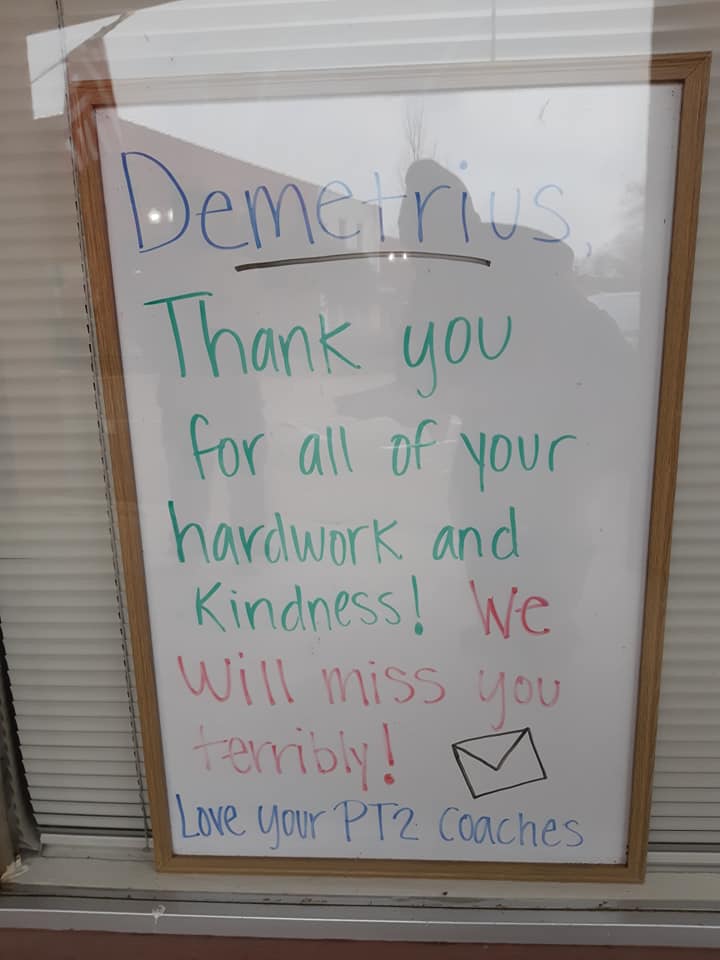 Demetrius,
Thank you
for all of your
hardwork and
Kindness! We
will miss you
terribly!
Love your PT2 Coaches